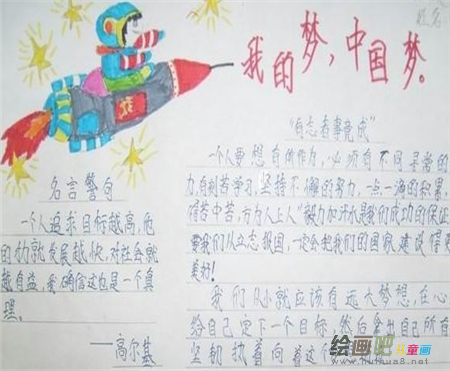 我的梦,中国梦。
名言警句
一个人追求目标越高,他
的力就发展越快,对社会就
越有益,我确信这也是一个真
理。
——高尔基
"有志者事竟成"
一个人要想有所作为,必须有不同寻常的
力,有刻苦学习,坚持不懈的努力,一点一滴的积累,
得苦中苦,方为人上人"毅力加汗水是我们成功的保证
要我们从立志报国,一定会把我们的国家建设得更
美好!
我们从小就应该有远大梦想,在心
给自己定下一个目标,然后拿出自己所有
坚韧执着向着这个
绘画吧儿童画
www.huihua8.com